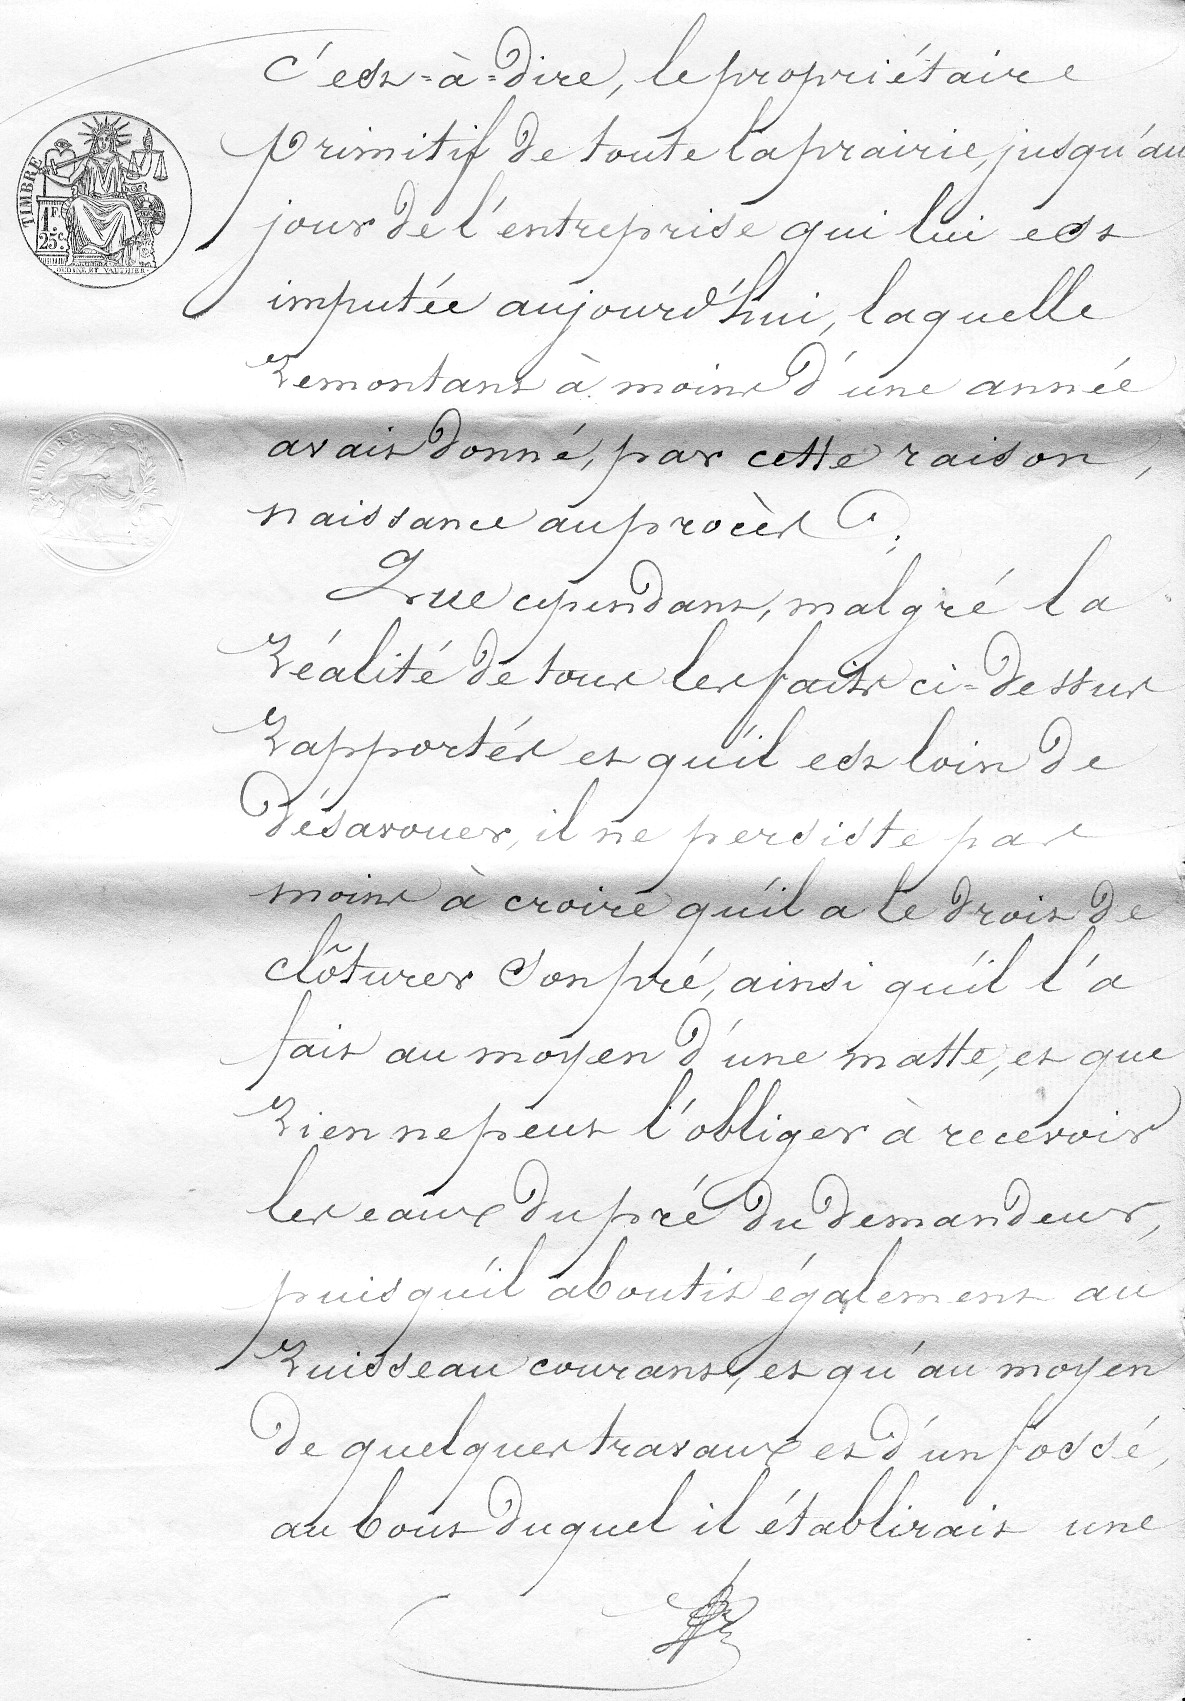 c'est-à-dire, le propriétaire
primitif de toute la prairie, jusqu'au
jour de l'entreprise qui lui est
TIMBRE
1 F.
25 c.
OUDINÉ ET VAUTHIER
imputée aujourd'hui, laquelle
remontant à moins d'une année
avait donné, par cette raison,
TIMBRE
naissance au procès ;
Que cependant, malgré la
réalité de tous les faits ci-dessus
rapportés et qu'il est loin de
désavouer, il ne persiste pas
moins à croire qu'il a le droit de
clôturer son pré, ainsi qu'il l'a
fait au moyen d'une matte, et que
rien ne peut l'obliger à recevoir
les eaux du pré du demandeur,
puisqu'il aboutit également au
ruisseau courant, et qu'au moyen
de quelques travaux et d'un fossé,
au bout duquel il établirait une